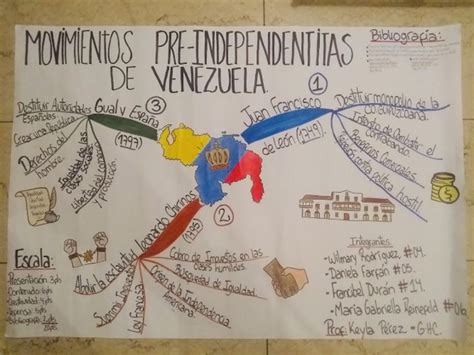 MOVIMIENTOS PRE-INDEPENDENTITAS
DE VENEZUELA.
Bibliografía:
①
Juan Francisco
de León (1749).
Destituir monopolio de la
C. Guipuzcoana.
Intento de
el
Contrabando.
Beneficios Comerciales.
política hostil
③
Gual y España
(1797)
Destituir Autoridades
Españolas
Crear una República
Derechos del
hombre.
Igualdad de las
clases sociales.
Libertad del comercio
producción
②
Leonardo Chirinos
(1795)
Abolir la esclavitud
Suprimir Impuestos
Ley Francesa
Cobro de Impuestos en las
clases humildes.
Búsqueda de Igualdad.
de la Independencia
Americana.
Escala:
-Presentación: 3pts
-Contenido: 6pts
-Creatividad: 4pts
-Defensa: 5pts
-Bibliografía: 2pts
20pts
Integrantes:
- Wilmary Rodríguez #04.
- Daniela Farfán #05.
- Durán #14.
- María Gabriella
Prof: Keyla Pérez - GHC